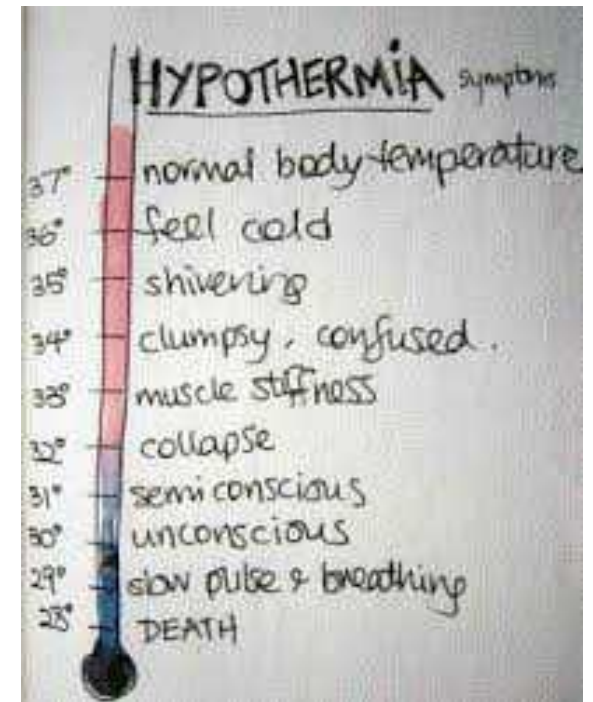 HYPOTHERMIA symptoms
37° normal body temperature
36° feel cold
35° shivering
34° clumpsy, confused.
33° muscle stiffness
32° collapse
31° semiconscious
30° unconscious
29° slow pulse & breathing
28° DEATH